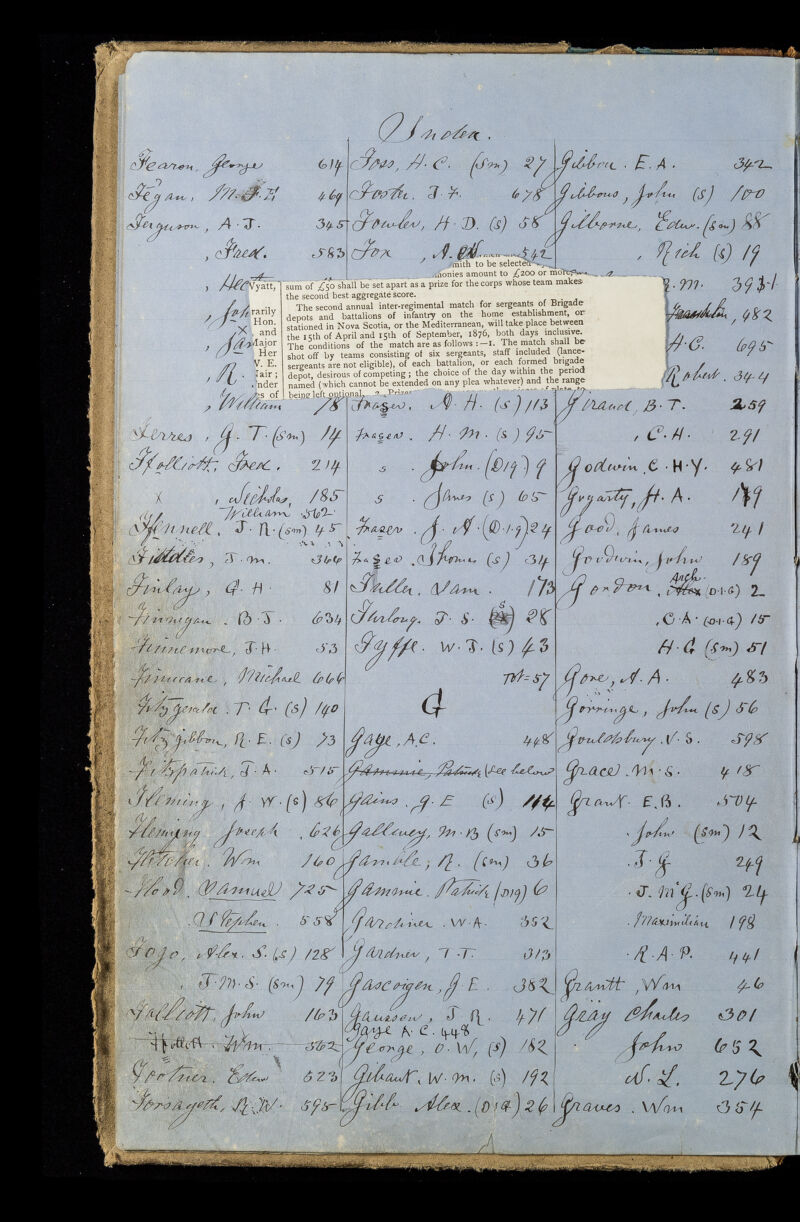 Index.
Fearon, George 614
Fegan, M. J. H 469
Ferguson, A. J. 345
, Fred. . 583
, Hect
, John
, Jas
, R.
, William 18
Ferres, J. T. (sm) 14
Ffolliott, Fred. 214
x , Nicholas, 185
William 562
Ffennell. J. R. (sm) 45
Fiddles, J. M. 366
Finlay, G. H. 81
Finnigan . B. J. 634
Finnemore, J. H. 53
Finucane, Michael 666
Fitzgerald . T. G. (s) 140
Fitzgibbon, R. E. (s) 73
Fitzpatrick, J. A. 515
Fleming, J. W. (s) 86
Fleming Joseph . 626
Fletcher. Wm 160
Flood. Samuel 725
. Stephen . 558
Fogo, Alex. S. (s) 128
, J. M. S. (sm) 79
Folliott, John 163
Ffolliott. Wm. 562
Footner. Edw 623
Forsayeth, R. W. 595
Foss, H. C. (sm) 27
Foster. J. F. 678
Fowler, H. D. (s) 58
Fox , A. 542
mith to be selected
monies amount to £200 or more
Vyatt,
rarily
Hon.
and
Major
Her
V. E.
fair ;
nder
es of
sum of £50 shall be set apart as a prize for the corps whose team makes
the second best aggregate score.
The second annual inter-regimental match for sergeants of Brigade
depots and battalions of infantry on the home establishment, or
stationed in Nova Scotia, or the Mediterranean, will take place between
the 15th of April and 15th of September, 1876, both days inclusive.
The conditions of the match are as follows :—1. The match shall be
shot off by teams consisting of six sergeants, staff included (lance-
sergeants are not eligible), of each battalion, or each formed brigade
depot, desirous of competing ; the choice of the day within the period
named (which cannot be extended on any plea whatever) and the range
being left optional. 2. Prizes
Fraser. A. H. (s) 113
Fraser. H. M. (s) 95
s . John. (D1g) 9
s . James (s) 65
Fraser . J. A. (D.1.g) 24
Fraser . Thomas (s) 34
Fuller. Sam. 173
Furlong. J. S. (s) 28
Fyffe. W. J. (s) 43
Tot = 57
G
Gaye, A.C. 448
Gammie, Patrick (see below
Gains . J. E (s) 114
Gallwey, M. B (sm) 15
Gamble, R. (sm) 36
Gammie. Patrick (D1g) 6
Gardiner . W. A. 352
Gardner, T. T. 313
Gascoigen, J. E. 382
Gaussen, J. R. 471
Gaye A. C. 448
George, O. W, (s) 182
Gibaut. W. M. (s) 192
Gibb Alex. (D1G) 26
Gibbon . E. A. 342
Gibbons, John (s) 100
Gilborne, Edw. (sm) 88
, Rich (s) 19
. M. 391
Franklin, 482
H. C. 695
Robert. 344
Giraud, B. T. 259
, C. H. 291
Godwin, C. H. Y. 481
Gogarty, H. A. 179
Good, James 241
Goodwin, John 189
Gordon, Arch. (D1G) 2
, C. A. (D1G) 15
H. G (sm) 51
Gore, A. A. 483
Gorringe, John (s) 56
Gouldsbury. V. S. 598
Grace. M. S. 418
Grant. E. B. 504
. John (sm) 12
. J. G. 249
. J. McG. (sm) 24
. Maximilian 198
. R. A. P. 441
Grantt, Wm 46
Gray Charles 301
John 652
N. L. 276
Graves. Wm 354